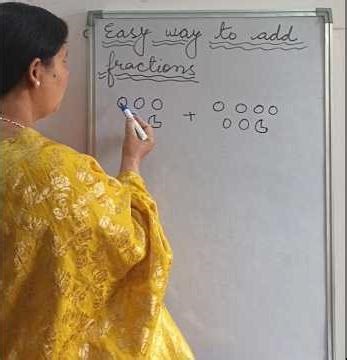 Easy way to add
fractions
+